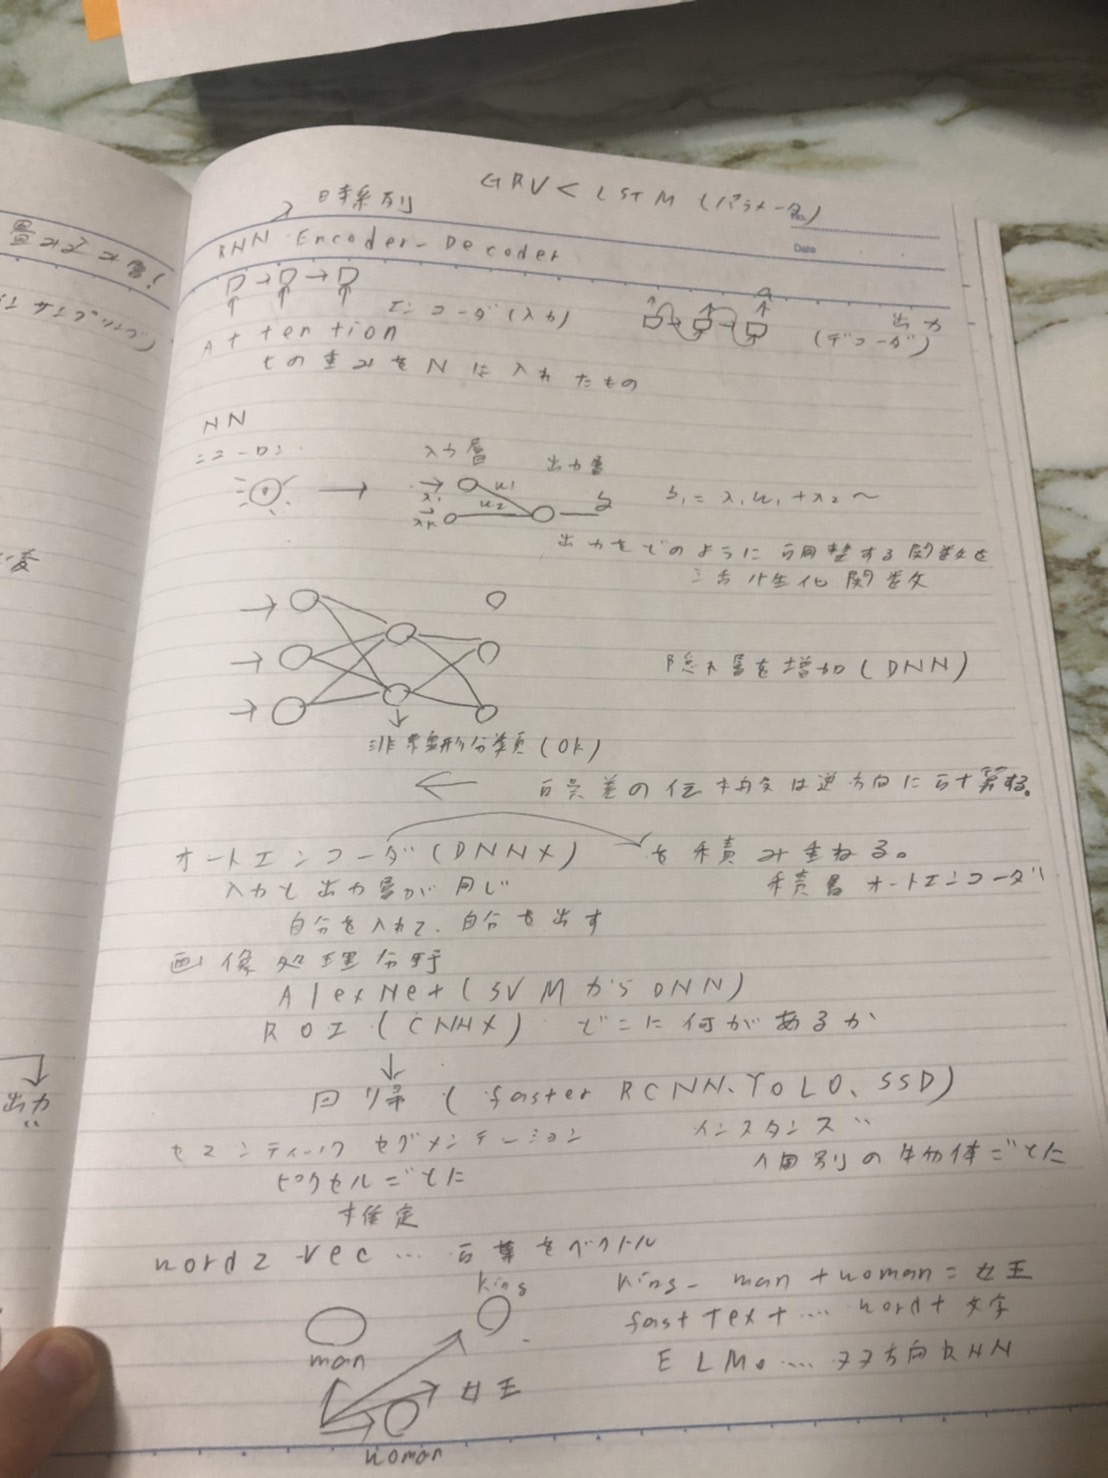 GRU < LSTM (パラメータ)
時系列
RNN Encoder-Decoder
No.
Date
エンコーダ(入力)
出力
(デコーダ)
Attention
tの重みをNに入れたもの
NN
ニューロン
入力層
出力層
x1
w1
w2
y
y1 = x1w1 + x2 〜
出力をどのように調整する関数を
活性化関数
隠れ層を増加(DNN)
非線形分類(OK)
← 誤差の伝播は逆方向に計算する。
オートエンコーダ(DNN×)
を積み重ねる。
入力と出力層が同じ
積層オートエンコーダ
自分を入れて、自分を出す
画像処理分野
AlexNet(SVMからDNN)
ROI(CNN×) どこに何があるか
↓
回帰(faster RCNN、YOLO、SSD)
セマンティック セグメンテーション
インスタンス 〃
ピクセルごとに
個別の物体ごとに
推定
word2vec … 言葉をベクトル
king
king - man + woman = 女王
fast text … word + 文字
man
ELMo … 双方向RNN
女王
woman
出力